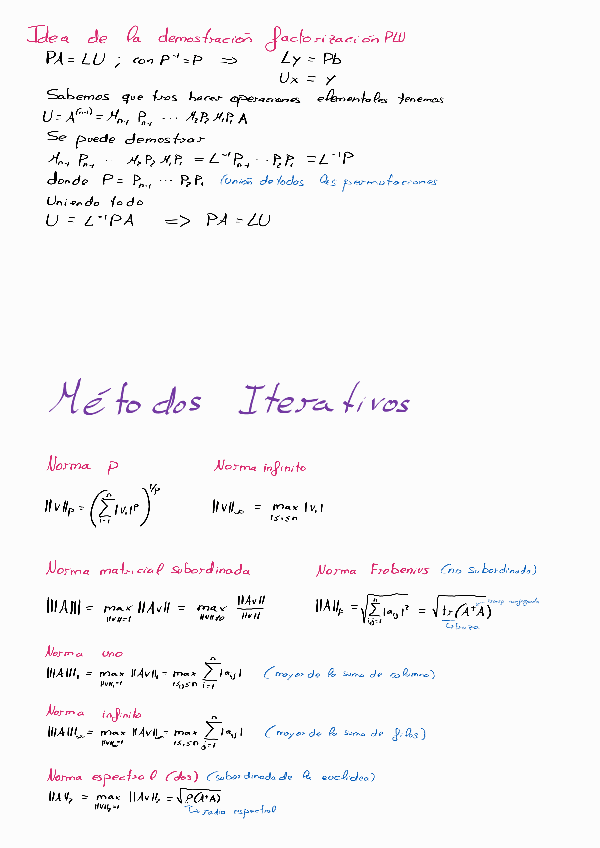 Idea de la demostración factorización PLU
PA = LU ; con P⁻¹ = P ⇒ Ly = Pb
Ux = y
Sabemos que tras hacer operaciones elementales tenemos
U = A⁽ⁿ⁻¹⁾ = Mₙ₋₁ Pₙ₋₁ ··· M₂P₂M₁P₁A
Se puede demostrar
Mₙ₋₁ Pₙ₋₁ ··· M₂P₂M₁P₁ = L⁻¹Pₙ₋₁ ··· P₂P₁ = L⁻¹P
donde P = Pₙ₋₁ ··· P₂P₁ (unión de todas las permutaciones
Uniendo todo
U = L⁻¹PA ⇒ PA = LU
Métodos Iterativos
Norma p Norma infinito
||v||ₚ = (∑ᵢ₌₁ⁿ |vᵢ|ᵖ)^{1/p} ||v||_∞ = max_{1≤i≤n} |vᵢ|
Norma matricial subordinada Norma Frobenius (no subordinada)
|||A||| = max_{||v||=1} ||Av|| = max_{||v||≠0} ||Av||/||v|| ||A||_F = √(∑_{i,j=1}ⁿ |a_{ij}|²) = √(tr(A*A))
Traza
Norma uno
|||A|||₁ = max_{||v||₁=1} ||Av||₁ = max_{1≤j≤n} ∑ᵢ₌₁ⁿ |a_{ij}| (mayor de la suma de columna)
Norma infinito
|||A|||_∞ = max_{||v||_∞=1} ||Av||_∞ = max_{1≤i≤n} ∑ⱼ₌₁ⁿ |a_{ij}| (mayor de la suma de filas)
Norma espectral (dos) (subordinada de la euclidea)
||A||₂ = max_{||v||₂=1} ||Av||₂ = √(ρ(A*A))
radio espectral